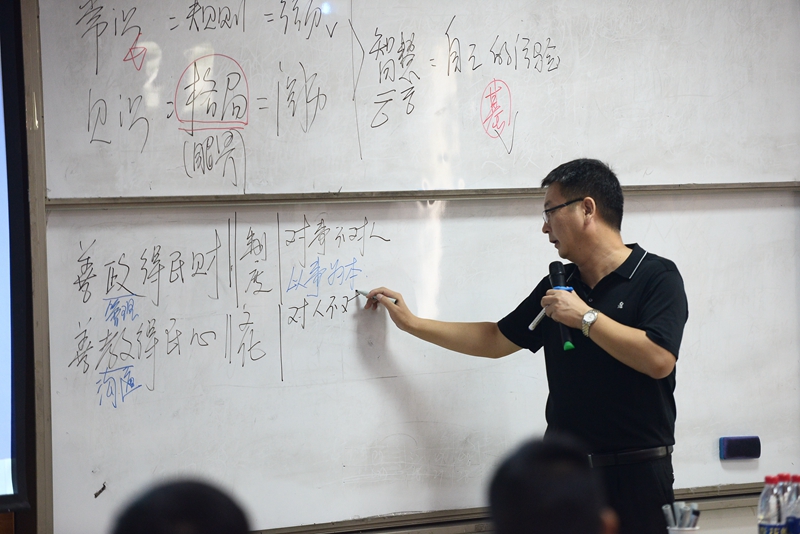 常识=规则=经验
智慧=自己的经验
见识=格局=阅历
(眼界)
善政得民财 制度 对事不对人
管理 以事为本
善教得民心 文化 对人不对
沟通